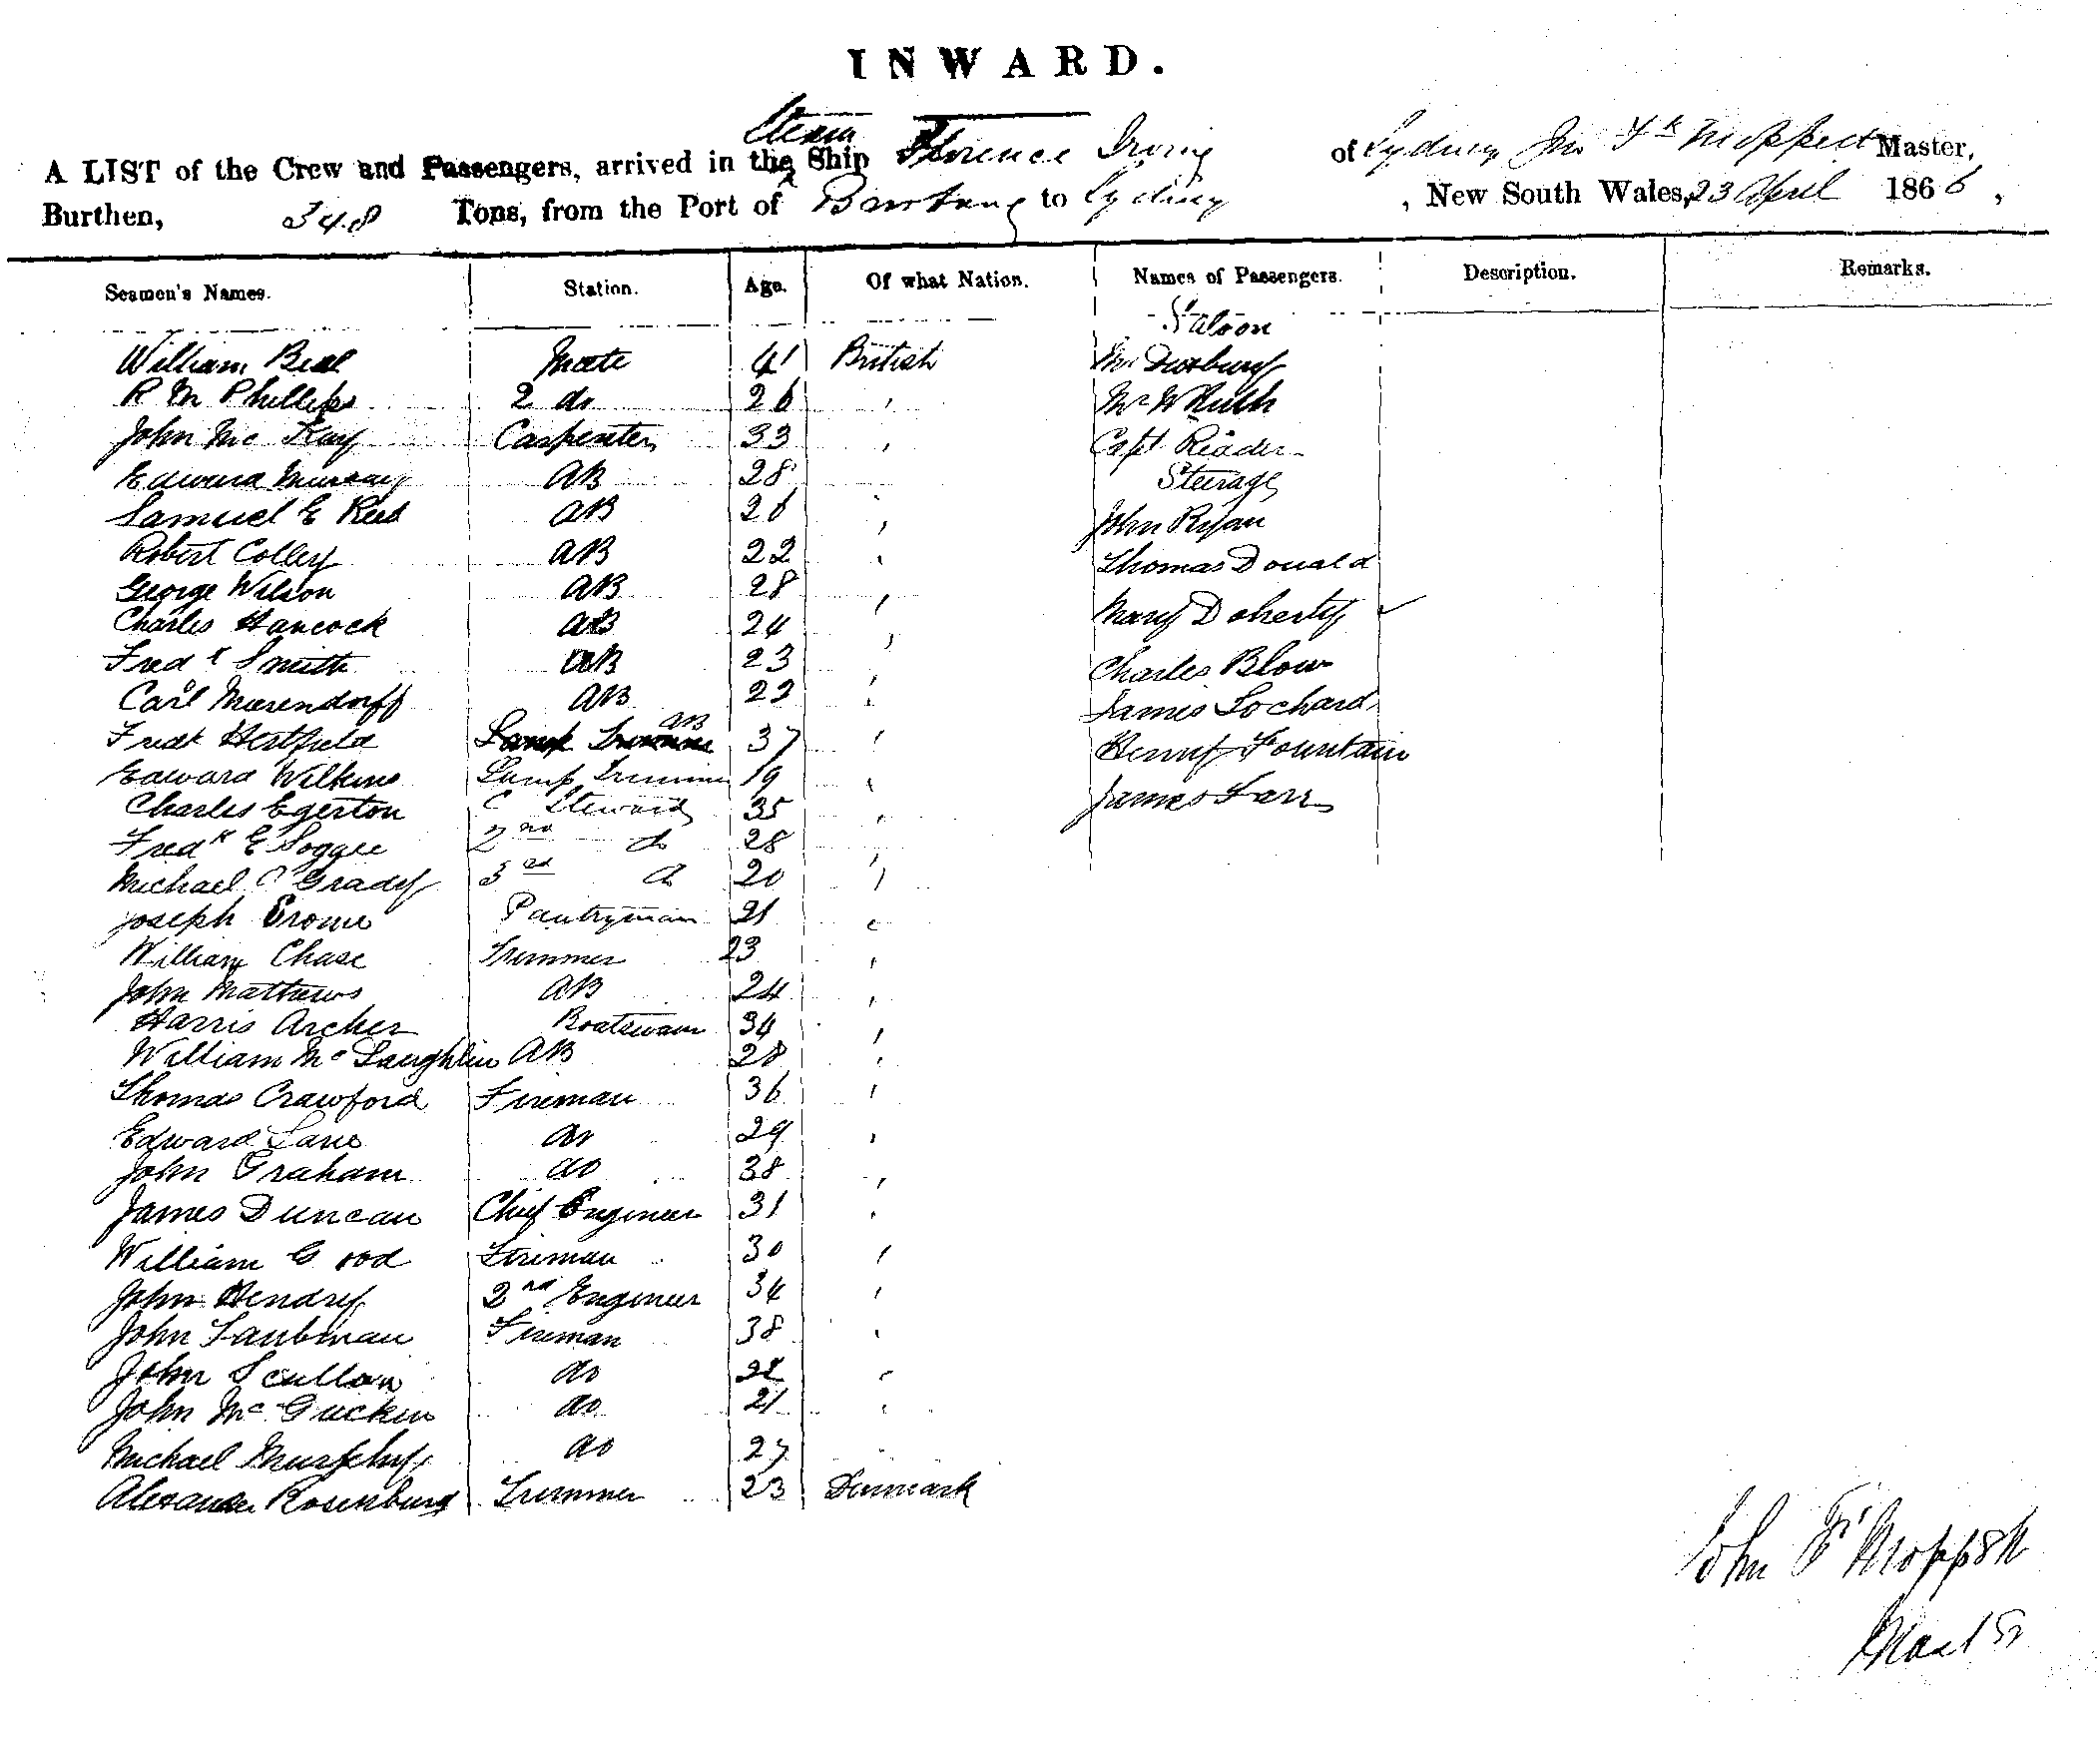 INWARD.
A LIST of the Crew and Passengers, arrived in the Steam Ship Florence Irving of Sydney Jno Fk Moppett Master,
Burthen, 348 Tons, from the Port of to Sydney , New South Wales, 23 April 1866,
Seamen's Names. Station. Age. Of what Nation. Names of Passengers. Description. Remarks.
Saloon
William Beal Mate 41 British Mr Duxbury
R M Phillips 2 do 26 " Mr W Rush
John Mc Kay Carpenter 33 " Capt Reader
Edward Murray AB 28 Steerage
Samuel E Reed AB 26 " John Ryan
Robert Colley AB 22 " Thomas Donald
George Wilson AB 28 " Mary Doherty ✓
Charles Hancock AB 24 "
Fredk Smith AB 23 " Charles Blow
Carl AB 23 " James Lochard
Fredk Hertfield Lamp Trimmer AB 37 " Henry Fountain
Edward Wilkins Lamp Trimmer 19 "
Charles Egerton C Steward 35 " James Farr
Fredk E Soggee 2nd do 28 "
Michael O'Grady 3rd do 20 "
Joseph Pantryman 21 "
William Chase Trimmer 23 "
John Mathews AB 24 "
Harris Archer Boatswain 34 "
William McLaughlin AB 28 "
Thomas Crawford Fireman 36 "
Edward Lane do 29 "
John Graham do 38 "
James Duncan Chief Engineer 31 "
William Good Fireman 30 "
John Hendry 2nd Engineer 34 "
John Taubman Fireman 38 "
John Scullan do "
John McGucken do 21 "
Michael Murphy do 27 "
Alexander Rosenburg Trimmer 23 Denmark
John Fk Moppett
Master